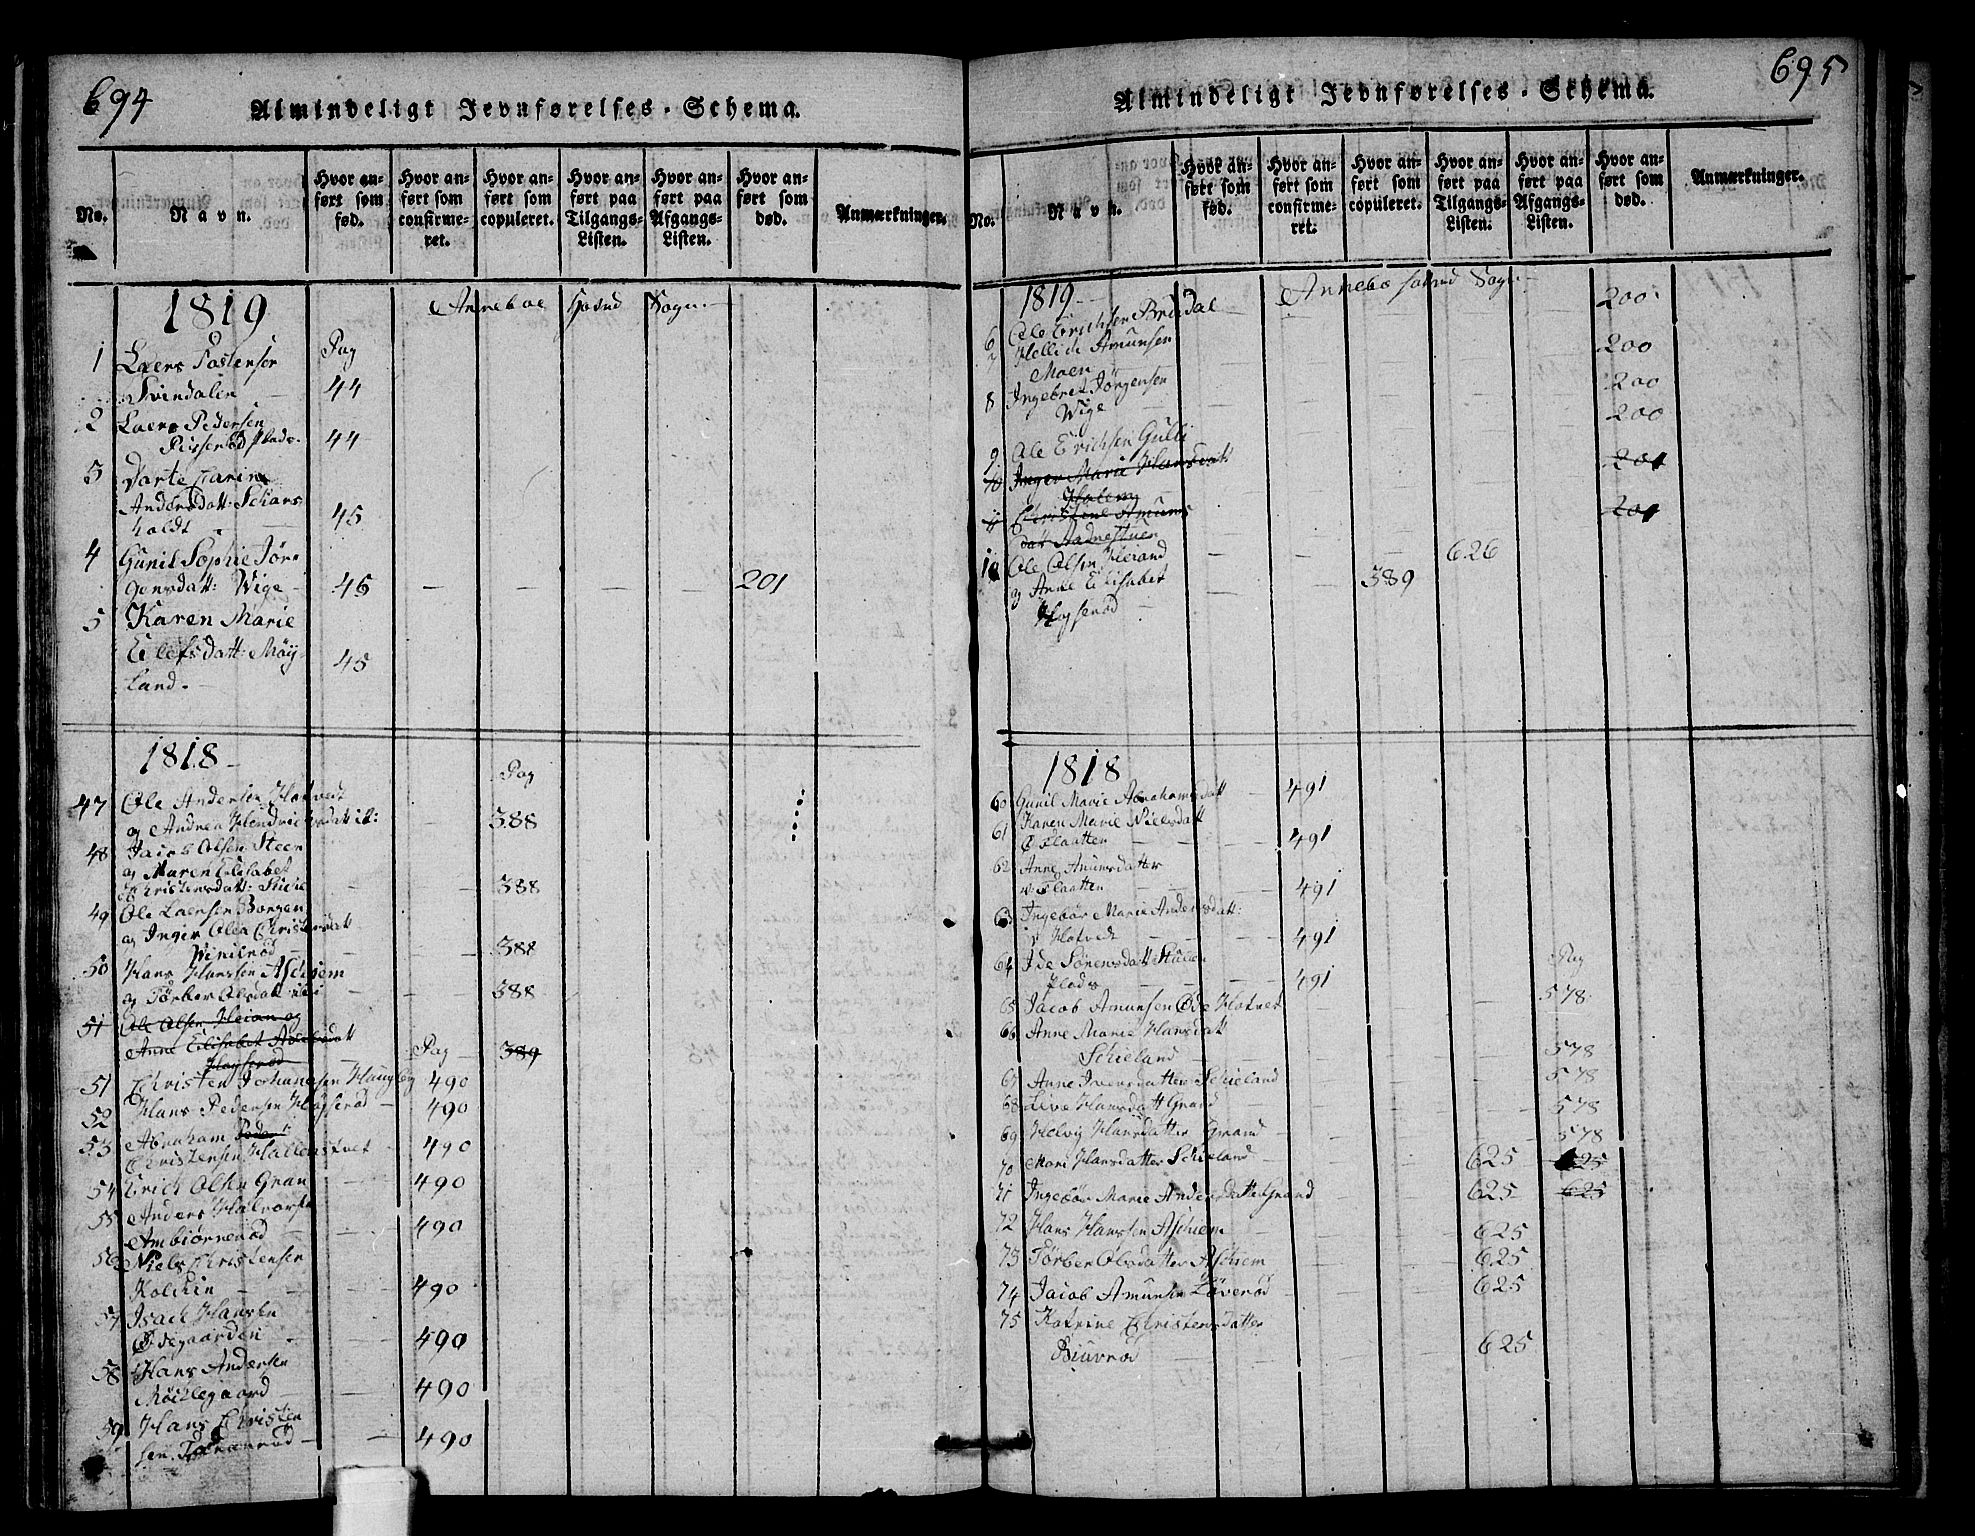 694
Almindeligt Jevnførelses-Schema.
No.
Navn.
Hvor anført som fød.
Hvor anført som confirmeret.
Hvor anført som copuleret.
Hvor anført paa Tilgangs-Listen.
Hvor anført paa Afgangs-Listen.
Hvor anført som død.
Anmærkninger.
1819 Anneboe Sogn.
Pag
1 Laers
Svindalen 44
2 Laers Pedersen
Plads. 44
3 Dorte Karine
Andersdatt: Schars
holdt 45
4 Gunil Sophie Jør
gensdatt: Wige 45 — — — — 201
5 Karen Marie
Elefsdatt: Møy
land. 45
1818
Pag
47 Ole Andersen Hotvedt
og Andrea Hendrichsdatt: 388
48 Jacob Olsen Steen
og Maren Elisabet
Christensdatt: 388
49 Ole Laersen Borgen
og Inger Olea Christensdatt
388
50 Hans Hanssen Aschiem
og Tørber Olsdatt: 388
51 Ole Olsen Heian og
Anne Elisabet
Høyserød Pag 389
51 Christen Johannesen Haugen 490
52 Hans Pedersen Høyserød 490
53 Abraham
Christensen 490
54 Erich Olsen Gran 490
55 Anders Halvorsen
Ambiørnerød 490
56 Niels Christensen
Kolchin 490
57 Isach Hansen
Ødegaarden 490
58 Hans Andersen
Møillegaard 490
59 Hans Christen
sen 490
695
Almindeligt Jevnførelses-Schema.
No.
Navn.
Hvor anført som fød.
Hvor anført som confirmeret.
Hvor anført som copuleret.
Hvor anført paa Tilgangs-Listen.
Hvor anført paa Afgangs-Listen.
Hvor anført som død.
Anmærkninger.
1819 Annebo Sogn
6 Ole Erichsen 200
7 Amunsen
Moen 200
8 Ingebret Jørgensen
Wige 200
9 Ole Erichsen Gulli 200
10 Inger Marie Hansdatt
201
11 Christine Amuns
datt 201
10 Ole Olsen Heian 626
og Anne Elisabet 389
Høyserød
1818
60 Gunil Marie Abrahamsdatt 491
61 Karen Marie Nielsdatt
Flaatten 491
62 Anne Amunsdatter
Flaatten 491
63 Ingebor Marie Andersdatt:
Hotvedt 491
64 Ide Sørensdatt:
Plads 491
Pag
65 Jacob Amunsen Hotvet 578
66 Anne Marie Hansdatt
Schieland 578
67 Anne Iversdatter Schieland 578
68 Live Hansdatt Grand 578
69 Helvig Hansdatter Grand 578
70 Mari Hansdatter Schieland 625 625
71 Ingebor Marie Andersdatt Grand 625 625
72 Hans Hanssen Aschiem 625
73 Tørber Olsdatter Aschiem 625
74 Jacob Amunsen Løverød 625
75 Katrine Christensdatter
Biuerød 625